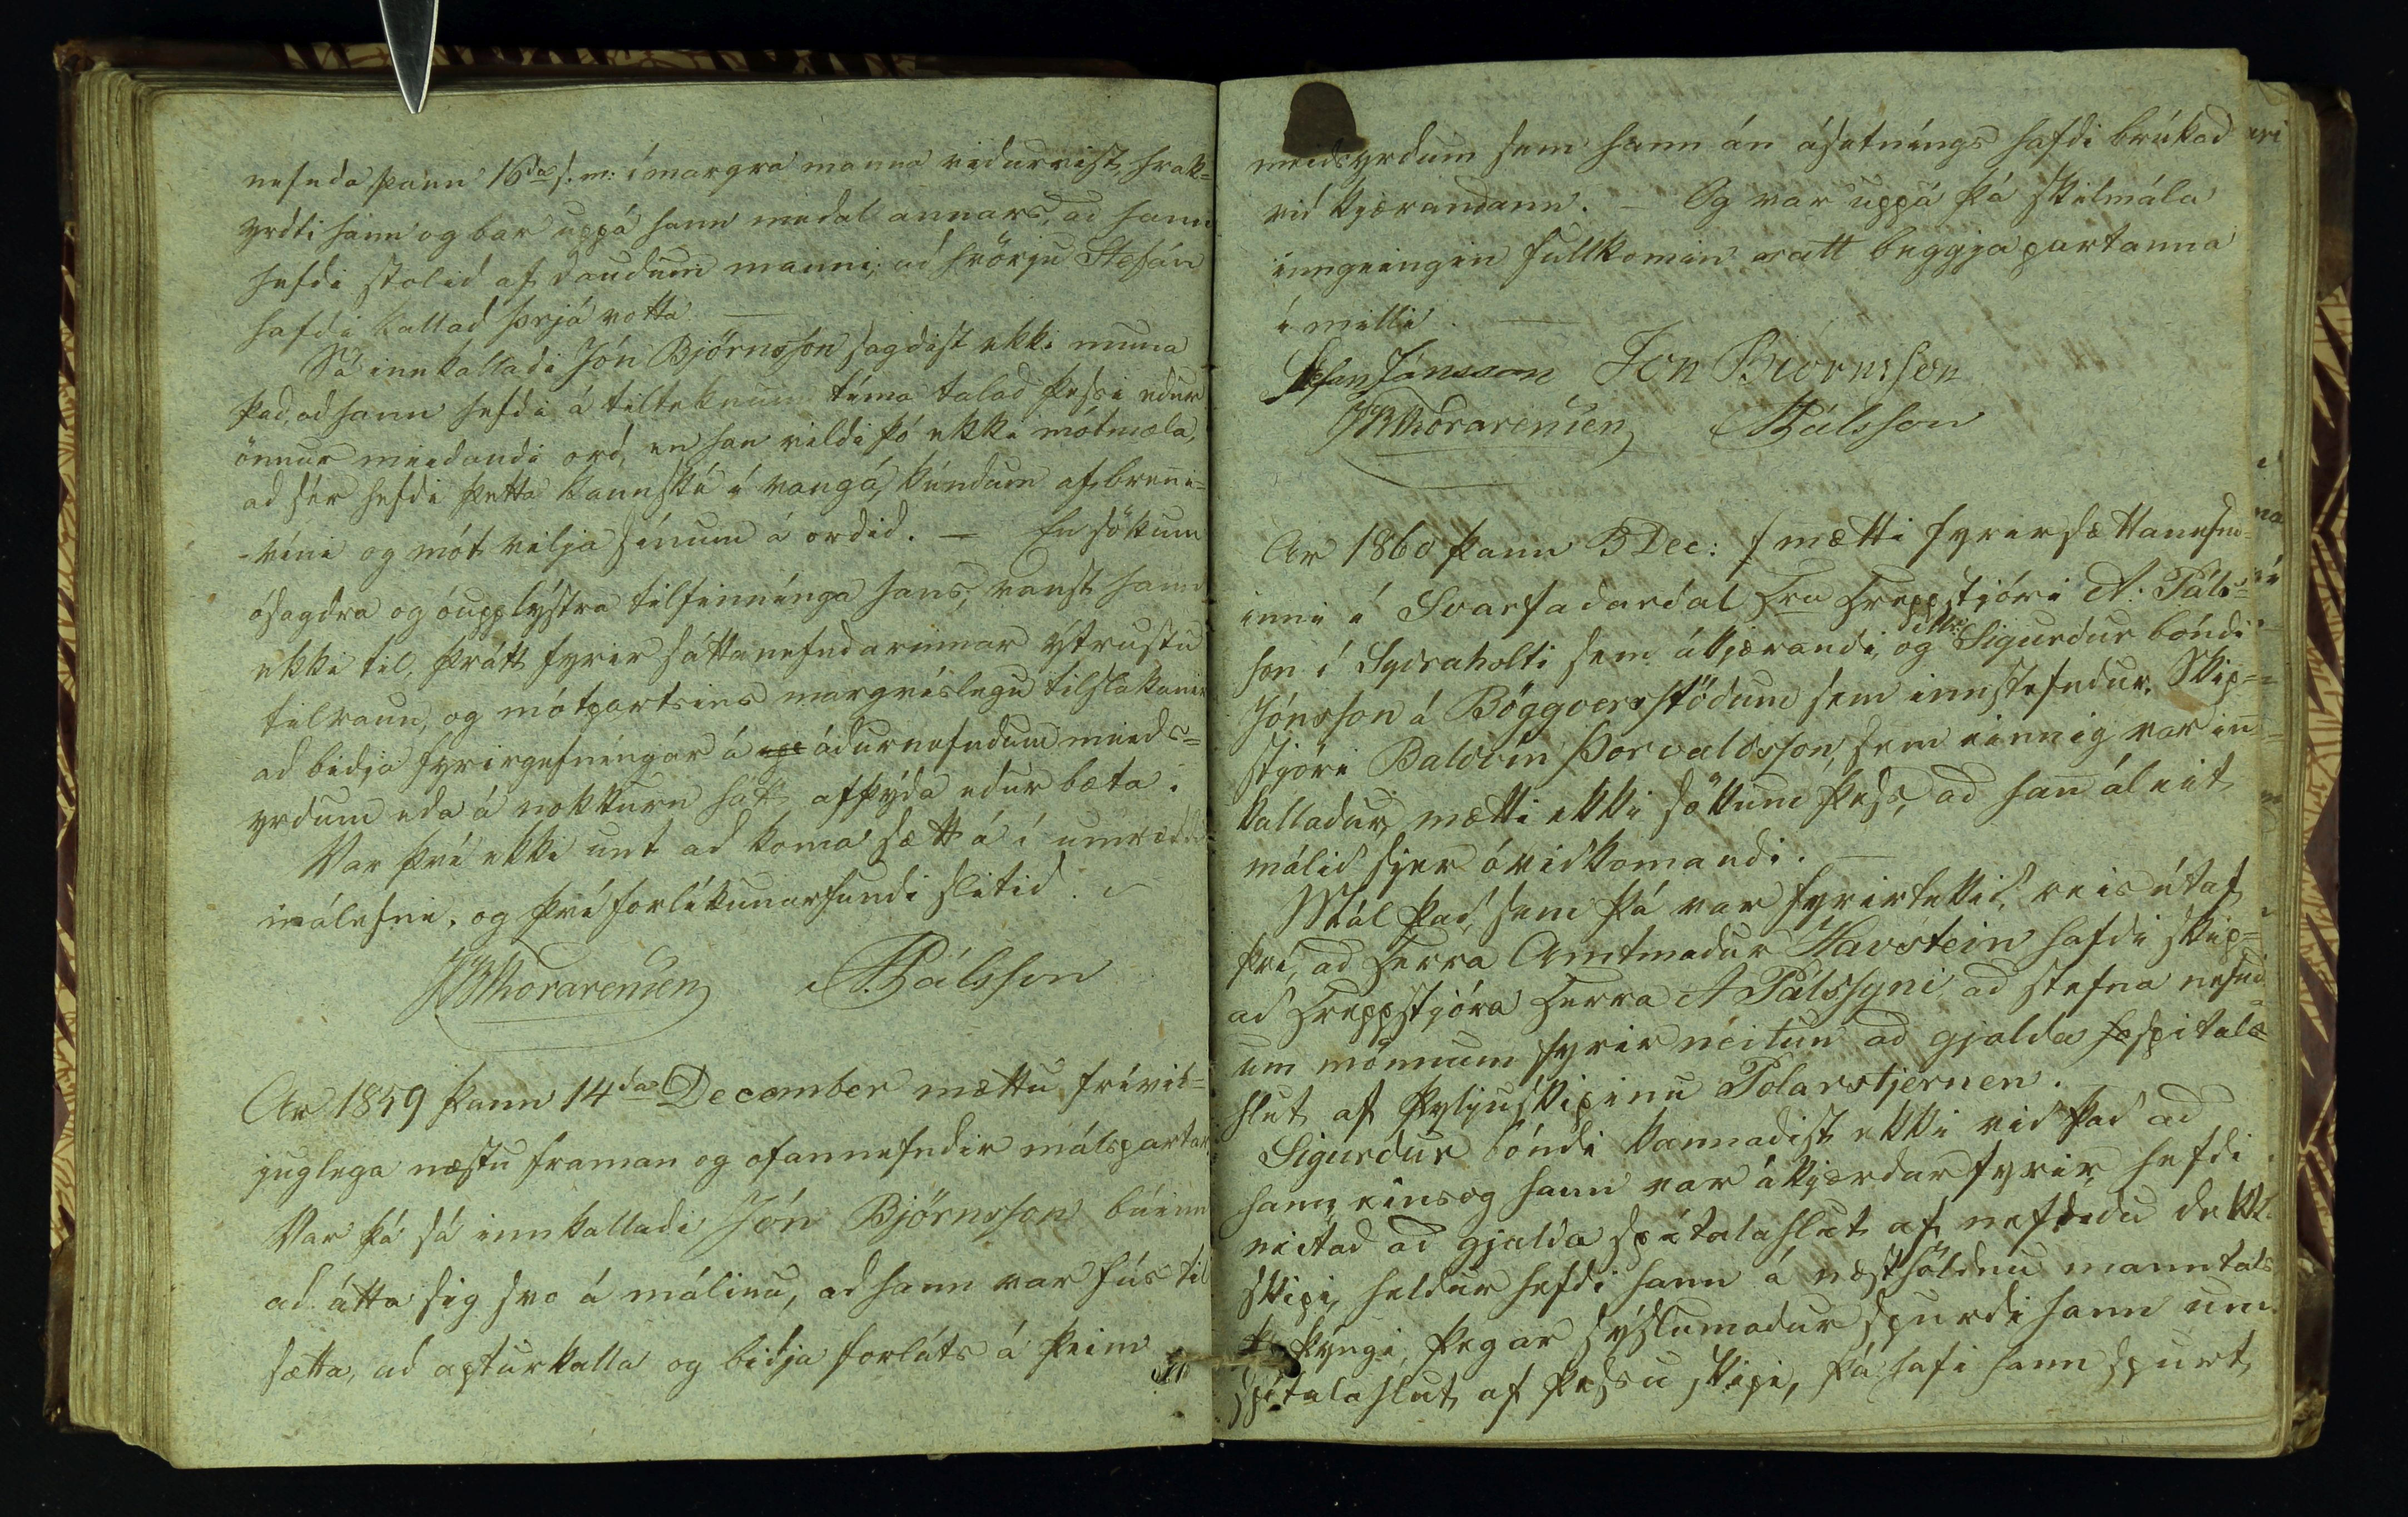 nefnda, þann 16da s. m: í margra manna viðurvist, hrak-
yrdti hann og bar uppá hann medal annars, ad hann
hefdi stolid af daudum manni; ad hvörju Stefán
hafdi kallad þrjá votta. —
Sá innkalladi Jón Björnsson sagdist ekki muna
þad, ad hann hefdi á tilteknum tíma talad þessi edur
önnur meidandi ord, en han vildi þó ekki mótmæla,
ad sér hefdi þetta kannské í vangá, kéndum af brenni-
-víni og mót vilja sínum á ordid. — En sökum
ósagdra og óupplýstra tilfinnínga hans, vanst hann
ekki til, þrátt fyrir sáttanefndarinnar ýtrustu
tilraun, og mótpartsins margvíslegu tilslakanir
ad bidja fyrirgefníngar á ádurnefndum meids-
yrdum eda á nokkurn hátt afþýda edur bæta.
Var því ekki unt ad koma sætt á í umrædda
málefni, og því forlíkunarfundi slitid.
JBThorarensen APálsson
Ar 1859 þann 14da December mættu frívil-
juglega næstu framan og ofannefndir málspartar.
Var þá sá innkalladi Jón Björnsson búinn
ad átta sig svo á málinu, ad hann var fús til
sætta, ad apturkalla og bidja forláts á þeim
meidsyrdum sem hann án ásetníngs hafdi brúkad
vid kjærandann. — Og var uppá þá skilmála
inngeingin fullkomin satt beggja partanna
í milli. —
Stefan Jónsson Jon Biörnsson
JBThorarensen APálsson
Ar 1860 þann 3 Dec: mætti fyrir sættanefnd-
inni í Svarfadardal Hra Hreppstjóri A. Páls-
son í Sydraholti sem ákjærandi, og Sigurdur bóndi
Jónsson á Böggversstödum sem innstefndur. Skip-
stjóri Baldvin Þorvaldsson, sem einnig var in-
kalladur, mætti ekki sökum þess, ad han áleit
málid sjer óvidkomandi. —
Mál þad, sem þá var fyrirtekid, reis útaf
því, ad Herra Amtmadur Havstein hafdi skip-
ad Hreppstjóra Herra A Pálssyni ad stefna nefnd-
um mönnum fyrir neitun ad gjalda spitala-
hlut af þyljuskipinu Polarstjernen.
Sigurdur bóndi kannadist ekki vid þad ad
hann, einsog hann var ákjærdur fyrir, hefdi
neitad ad gjalda spítalahlut af nefndu dekk-
skipi, heldur hefdi hann á næsthöldnu manntals
þýngi, þegar sýslumadur spurdi hann um
spítalahlut af þessu skipi, þá hafi hann spurt,